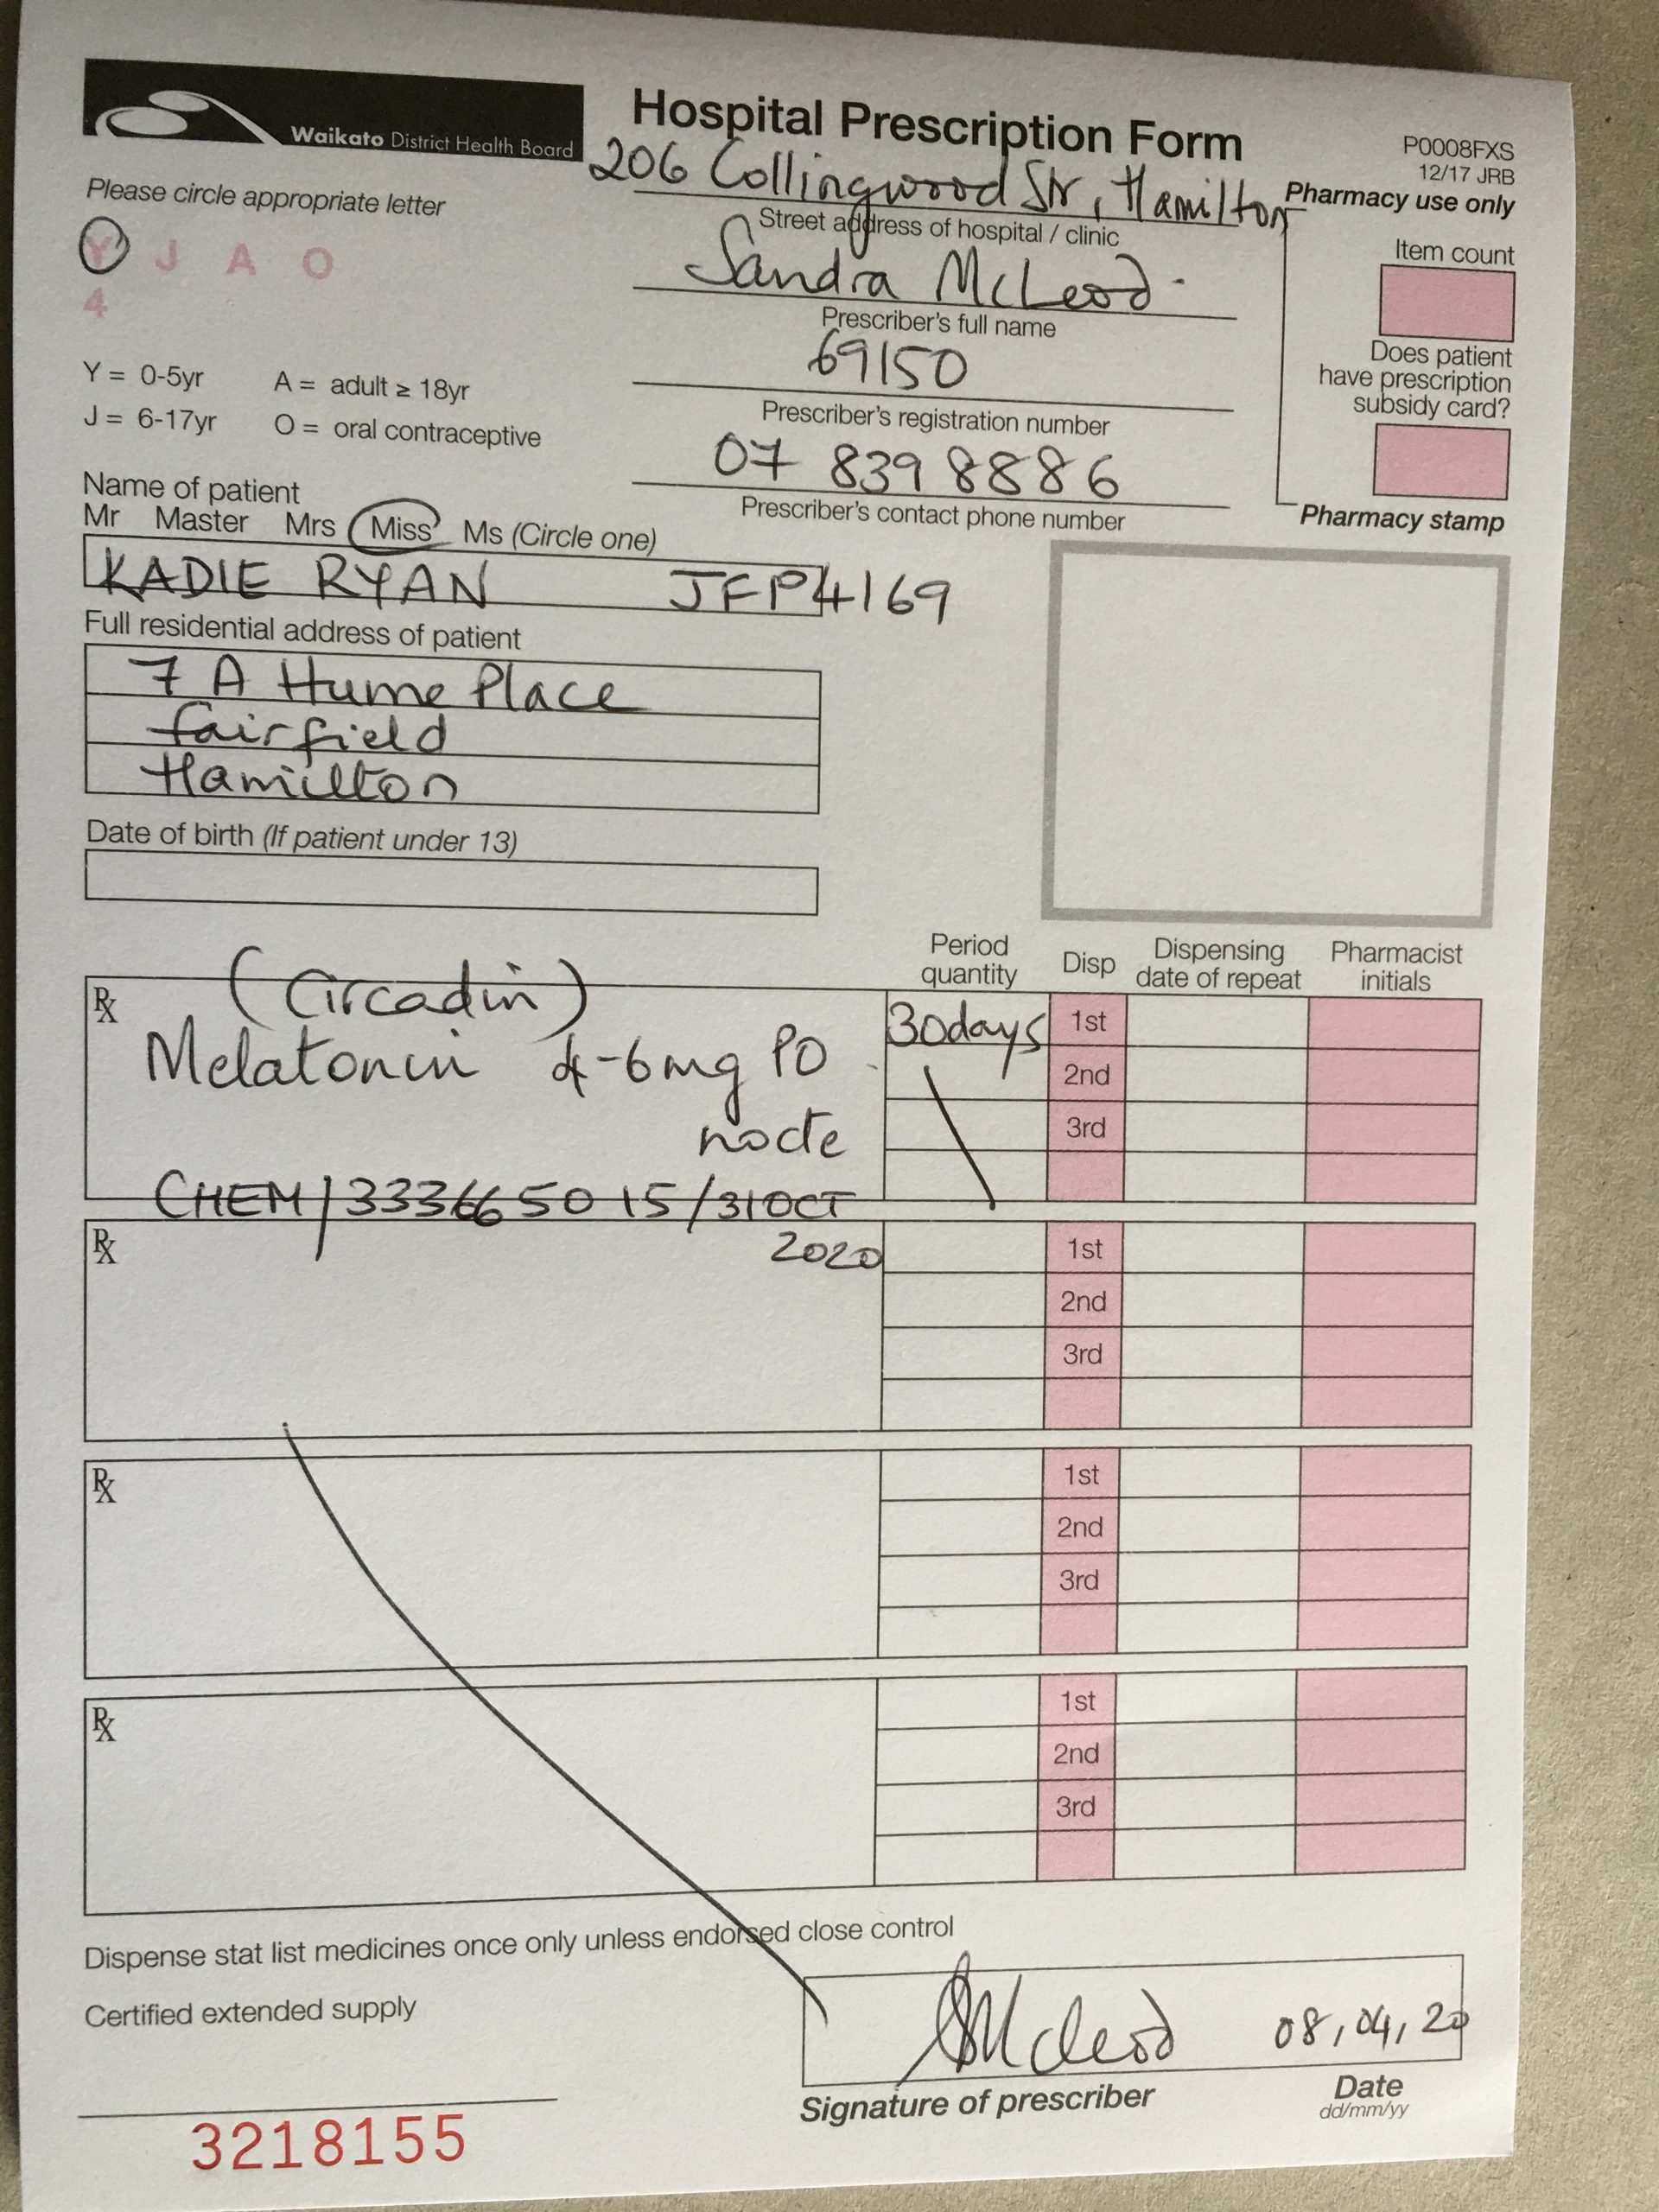 Waikato District Health Board
Hospital Prescription Form
P0008FXS
12/17 JRB
206 Collingwood Str, Hamilton
Street address of hospital / clinic
Please circle appropriate letter
Y J A O
4
Y = 0-5yr A = adult ≥ 18yr
J = 6-17yr O = oral contraceptive
Sandra McLeod
Prescriber's full name
69150
Prescriber's registration number
07 839 8886
Prescriber's contact phone number
Pharmacy use only
Item count
Does patient
have prescription
subsidy card?
Pharmacy stamp
Name of patient
Mr Master Mrs Miss Ms (Circle one)
KADIE RYAN JFP4169
Full residential address of patient
7 A Hume Place
fairfield
Hamilton
Date of birth (If patient under 13)
Period quantity Disp Dispensing date of repeat Pharmacist initials
Rx (Circadin)
Melatonin 4-6mg PO
nocte
CHEM/3336650 15/31OCT
2020
30days
1st
2nd
3rd
Rx
1st
2nd
3rd
Rx
1st
2nd
3rd
Rx
1st
2nd
3rd
Dispense stat list medicines once only unless endorsed close control
Certified extended supply
SMcleod 08,04,20
Signature of prescriber Date
dd/mm/yy
3218155